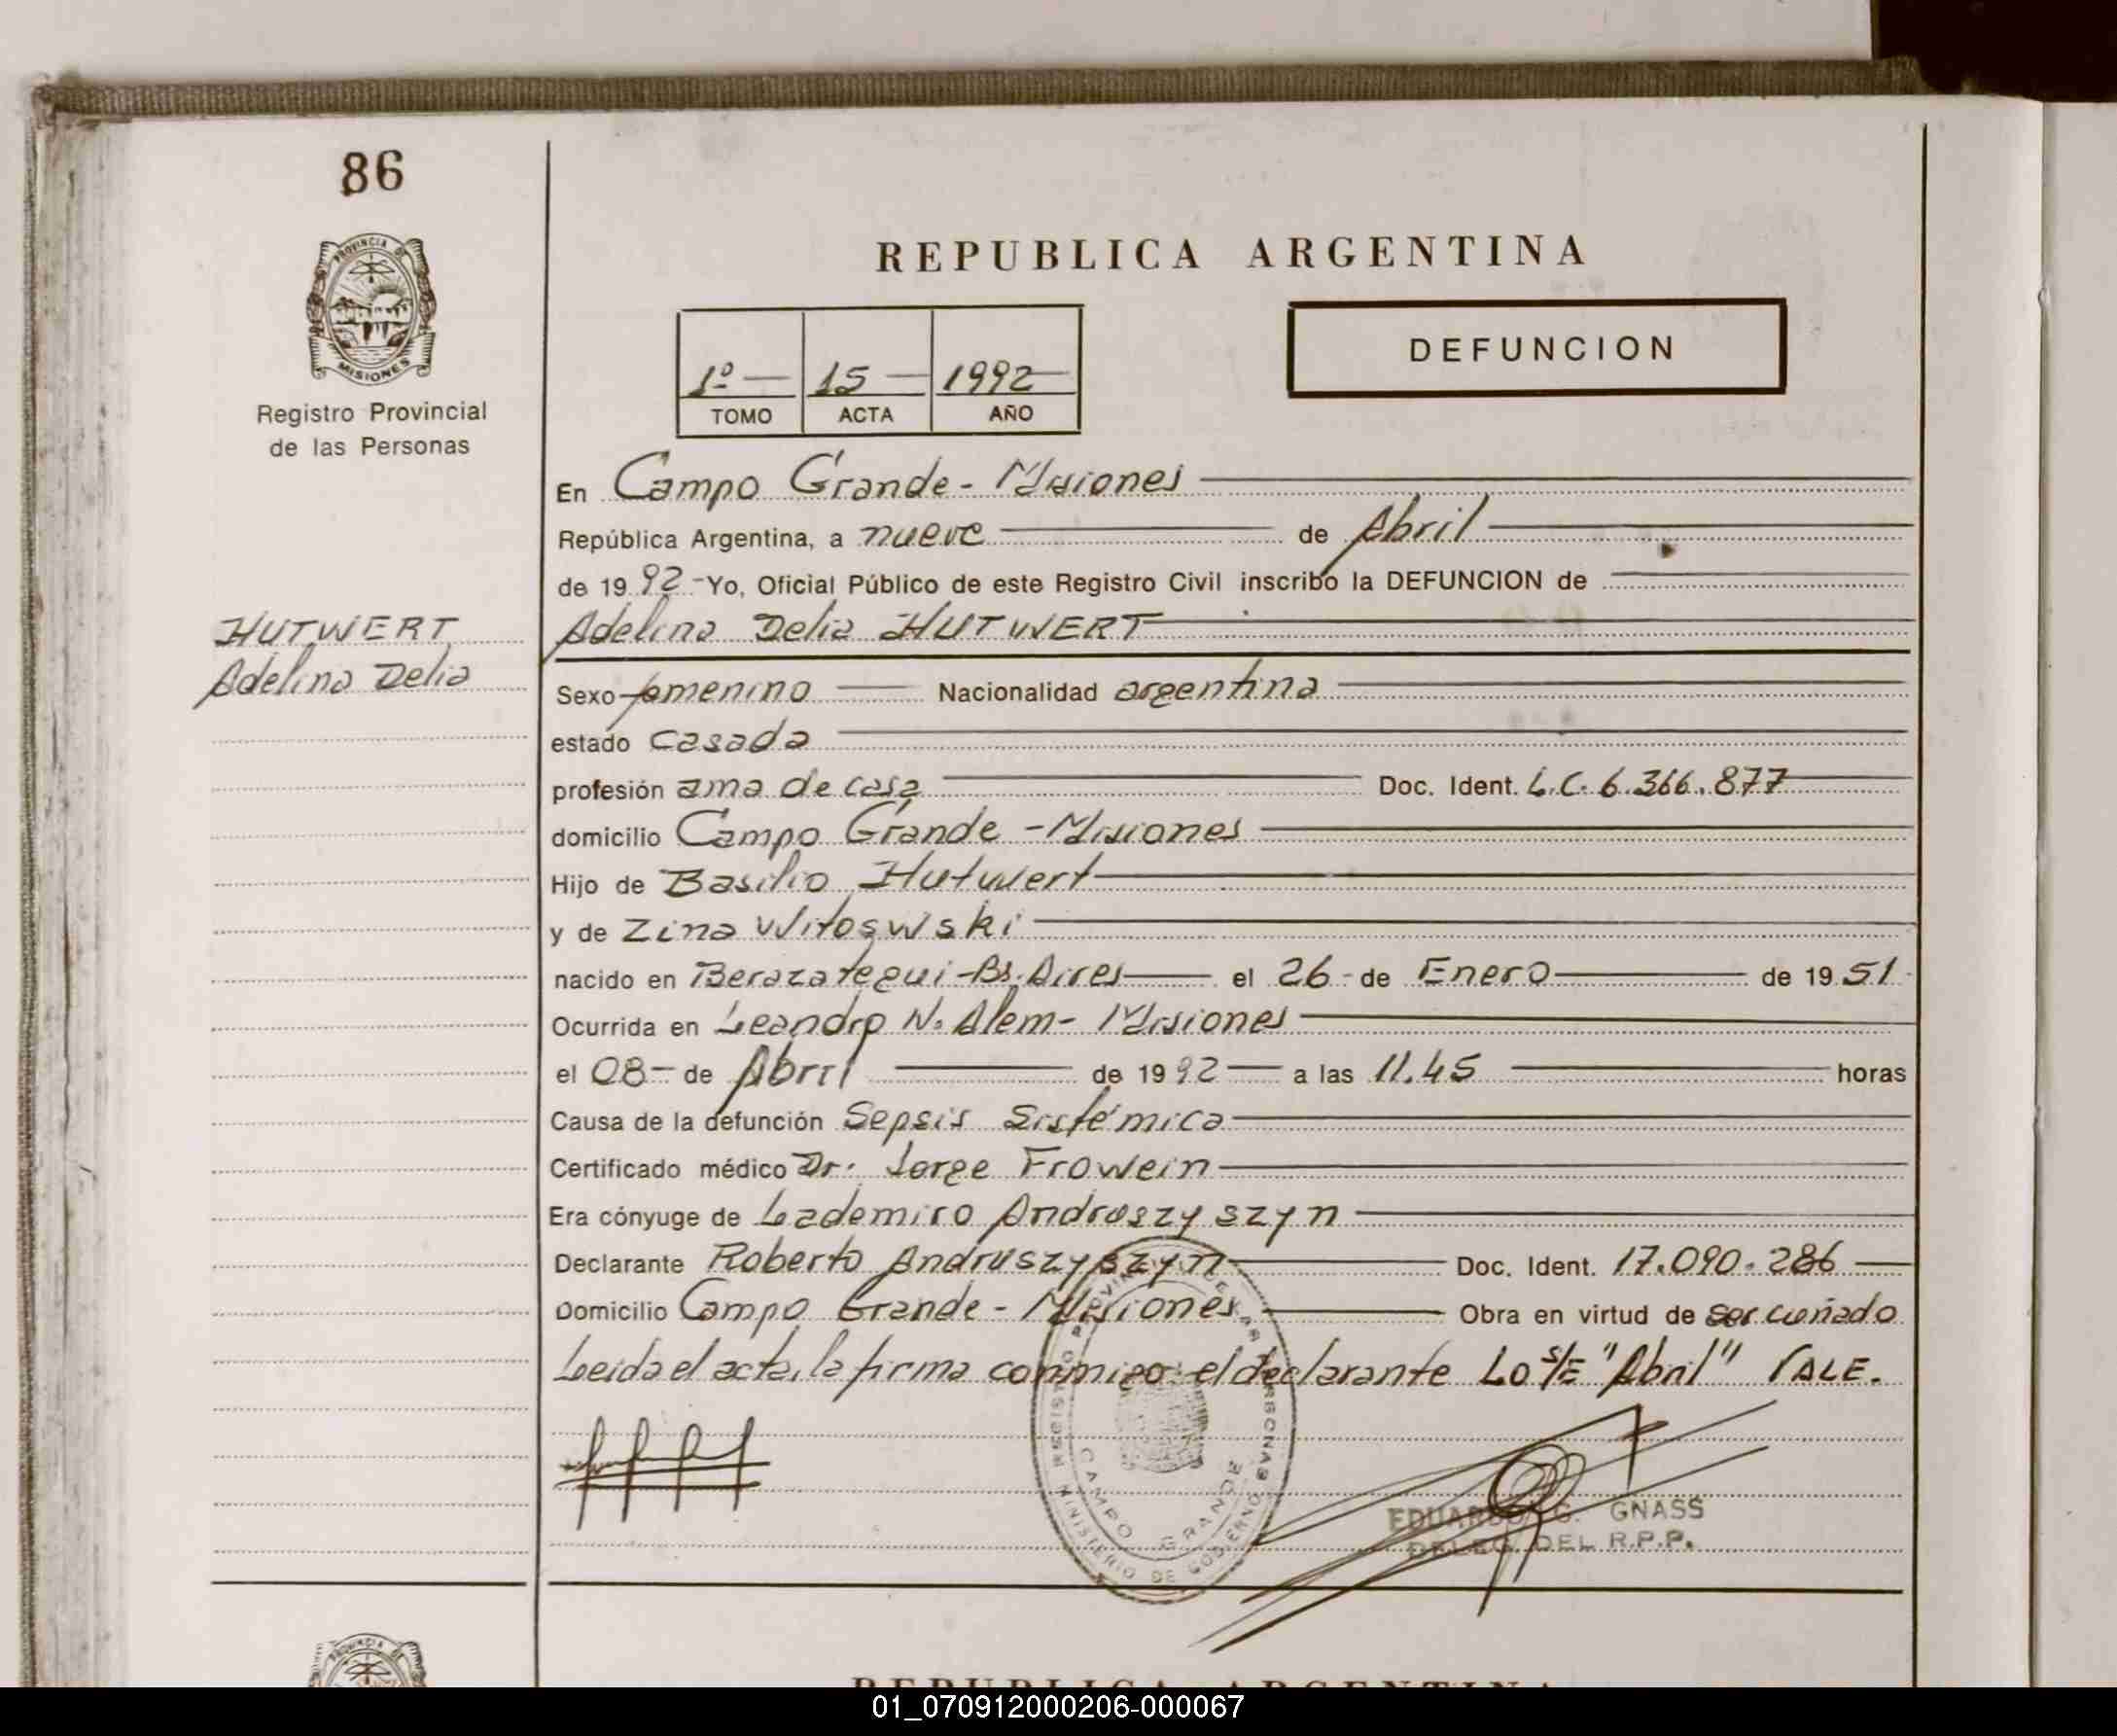 86
PROVINCIA DE
MISIONES
Registro Provincial
de las Personas
HUTWERT
Adelina Delia
REPUBLICA ARGENTINA
1º 15 1992
TOMO ACTA AÑO
DEFUNCION
En Campo Grande - Misiones
República Argentina, a nueve de Abril
de 1992 - Yo, Oficial Público de este Registro Civil inscribo la DEFUNCION de
Adelina Delia HUTWERT
Sexo femenino Nacionalidad argentina
estado casada
profesión ama de casa Doc. Ident. L.C. 6.366.877
domicilio Campo Grande - Misiones
Hijo de Basilio Hutwert
y de Zina Witoswski
nacido en Berazategui - Bs. Aires el 26 - de Enero de 1951
Ocurrida en Leandro N. Alem - Misiones
el 08 - de Abril de 1992 a las 11.45 horas
Causa de la defunción Sepsis Sistémica
Certificado médico Dr. Jorge Frowein
Era cónyuge de Lademiro Andruszyszyn
Declarante Roberto Andruszyszyn Doc. Ident. 17.090.286
Domicilio Campo Grande - Misiones Obra en virtud de ser cuñado
Leida el acta, la firma conmigo el declarante Lo S/E "Abril" VALE.
CAMPO GRANDE
MINISTERIO DE GOBIERNO
EDUARDO G. GNASS
DELEG. DEL R.P.P.
PROVINCIA
REPUBLICA ARGENTINA
01_070912000206-000067